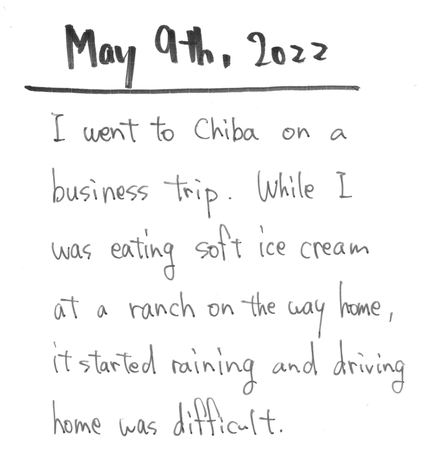 May 9th, 2022
I went to Chiba on a
business trip. While I
was eating soft ice cream
at a ranch on the way home,
it started raining and driving
home was difficult.